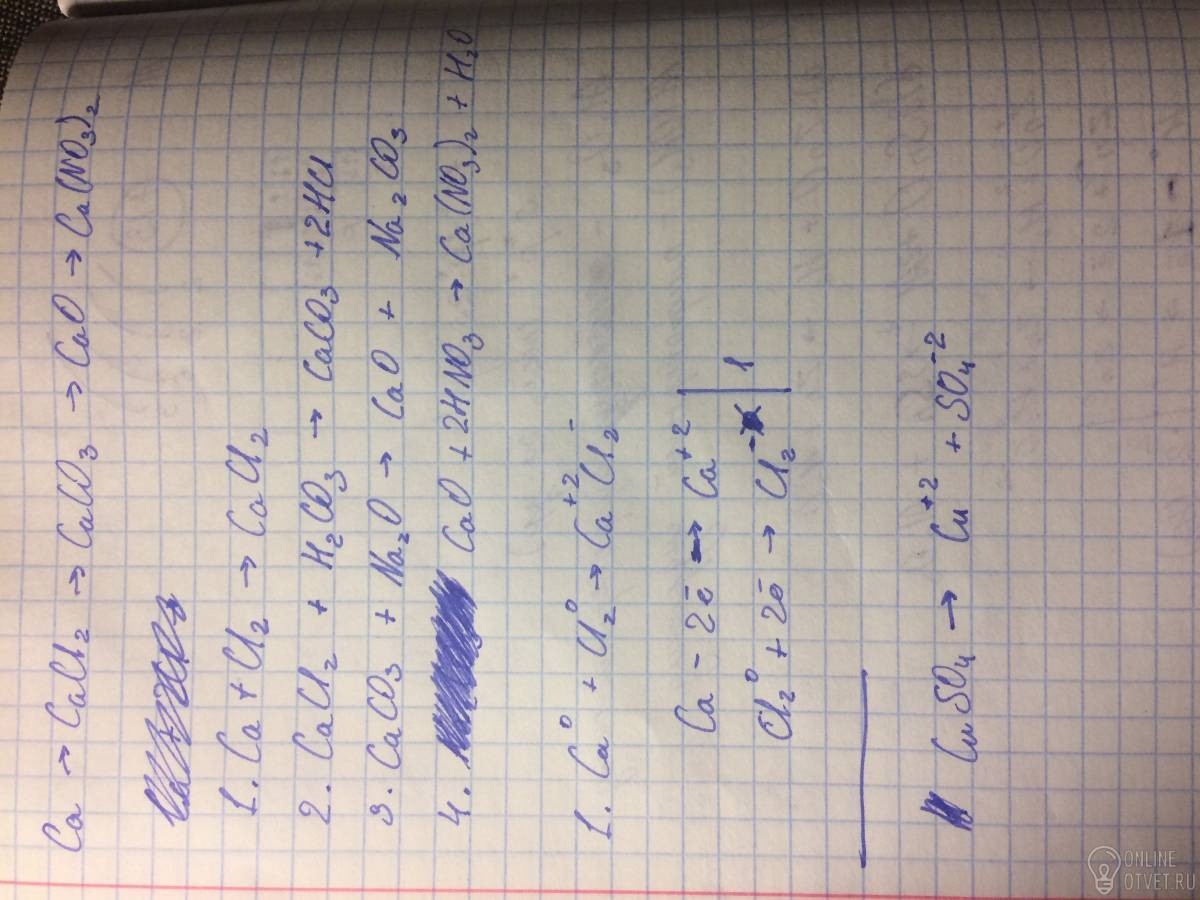 Ca → CaCl₂ → CaCO₃ → CaO → Ca(NO₃)₂
1. Ca + Cl₂ → CaCl₂
2. CaCl₂ + H₂CO₃ → CaCO₃ + 2HCl
3. CaCO₃ + Na₂O → CaO + Na₂CO₃
4. CaO + 2HNO₃ → Ca(NO₃)₂ + H₂O
1. Ca⁰ + Cl₂⁰ → Ca⁺²Cl₂⁻
Ca - 2ē → Ca⁺² | 1
Cl₂⁰ + 2ē → Cl₂⁻ |
CuSO₄ → Cu⁺² + SO₄⁻²
ONLINE
OTVET.RU